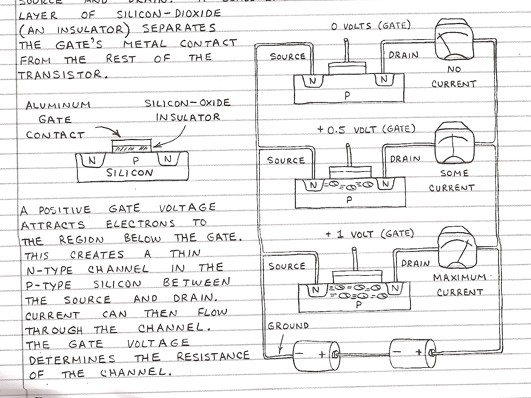 LAYER OF SILICON-DIOXIDE
(AN INSULATOR) SEPARATES
THE GATE'S METAL CONTACT
FROM THE REST OF THE
TRANSISTOR.
ALUMINUM
GATE
CONTACT
SILICON-OXIDE
INSULATOR
N P N
SILICON
A POSITIVE GATE VOLTAGE
ATTRACTS ELECTRONS TO
THE REGION BELOW THE GATE.
THIS CREATES A THIN
N-TYPE CHANNEL IN THE
P-TYPE SILICON BETWEEN
THE SOURCE AND DRAIN.
CURRENT CAN THEN FLOW
THROUGH THE CHANNEL.
THE GATE VOLTAGE
DETERMINES THE RESISTANCE
OF THE CHANNEL.
0 VOLTS (GATE)
SOURCE
DRAIN
N N
P
NO
CURRENT
+ 0.5 VOLT (GATE)
SOURCE
DRAIN
N N
P
SOME
CURRENT
+ 1 VOLT (GATE)
SOURCE
DRAIN
N N
P
MAXIMUM
CURRENT
GROUND
- +
- +